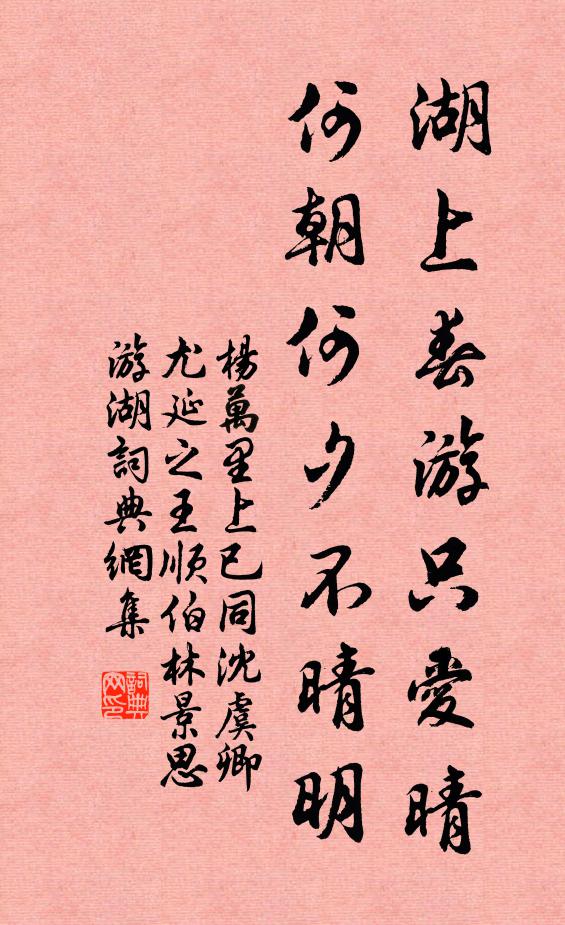 湖上春游只愛晴
何朝何夕不晴明
楊萬里上巳同沈虞卿
尤延之王順伯林景思
游湖詞典網集
詞典
网印